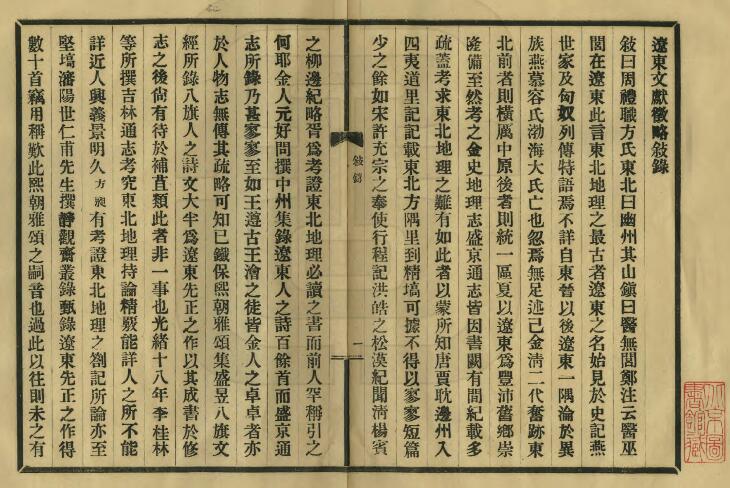 遼東文獻徵略敍錄
敍曰周禮職方氏東北曰幽州其山鎭曰醫無閭鄭注云醫巫
閭在遼東此言東北地理之最古者遼東之名始見於史記燕
世家及匈奴列傳特語焉不詳自東晉以後遼東一隅淪於異
族燕慕容氏渤海大氏亡也忽焉無足述己金淸二代奮跡東
北前者則橫厲中原後者則統一區夏以遼東爲豐沛舊鄕崇
隆備至然考之金史地理志盛京通志皆因書闕有間紀載多
疏蓋考求東北地理之難有如此者以蒙所知唐賈耽邊州入
四夷道里記記載東北方隅里到精塙可據不得以寥寥短篇
少之餘如宋許亢宗之奉使行程記洪皓之松漠紀聞淸楊賓
敍錄
一
之柳邊紀略胥爲考證東北地理必讀之書而前人罕稱引之
何耶金人元好問撰中州集錄遼東人之詩百餘首而盛京通
志所錄乃甚寥寥至如王遵古王澮之徒皆金人之卓卓者亦
於人物志無傳其疏略可知已鐵保熙朝雅頌集盛昱八旗文
經所錄八旗人之詩文大半爲遼東先正之作以其成書於修
志之後尙有待於補苴類此者非一事也光緖十八年李桂林
等所撰吉林通志考究東北地理持論精覈能詳人之所不能
詳近人興義景明久方昶有考證東北地理之劄記所論亦至
堅塙瀋陽世仁甫先生撰靜觀齋叢錄甄錄遼東先正之作得
數十首竊用稱歎此熙朝雅頌之嗣音也過此以往則未之有